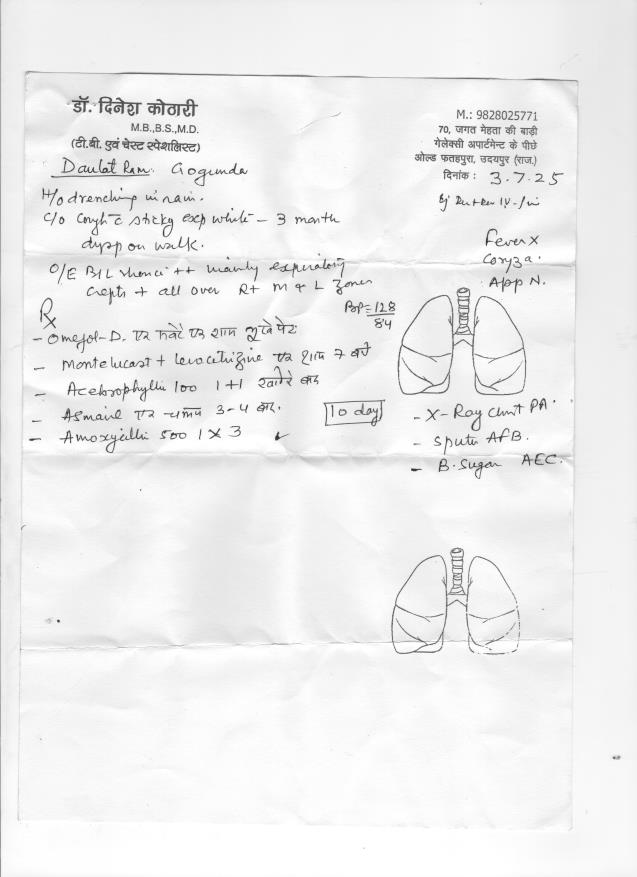 डॉ. दिनेश कोठारी
M.B.,B.S.,M.D.
(टी.बी. एवं चेस्ट स्पेशलिस्ट)
M.: 9828025771
70, जगत मेहता की बाड़ी
गेलेक्सी अपार्टमेन्ट के पीछे
ओल्ड फतहपुरा, उदयपुर (राज.)
दिनांक : 3.7.25
Daulat Ram. Gogunda
H/o drenching in rain.
C/o Cough c sticky exp white - 3 month
dysp on walk.
Fever X
Coryza.
App N.
O/E B/L rhonci ++ mainly expiratory
Crepts + all over R+ M & L Zones
BP = 128/84
Rx
- Omejol-D. एक सवेरे एक शाम भूखे पेट
- Montelucast + Levocetrizine एक शाम 7 बजे
- Acebrophyllin 100 1+1 खाने बाद
- Asmairl एक चम्मच 3-4 बार.
- Amoxycillin 500 1 X 3
10 day
- X-Ray Chest PA.
- Sputum AFB.
- B. Sugar AEC.